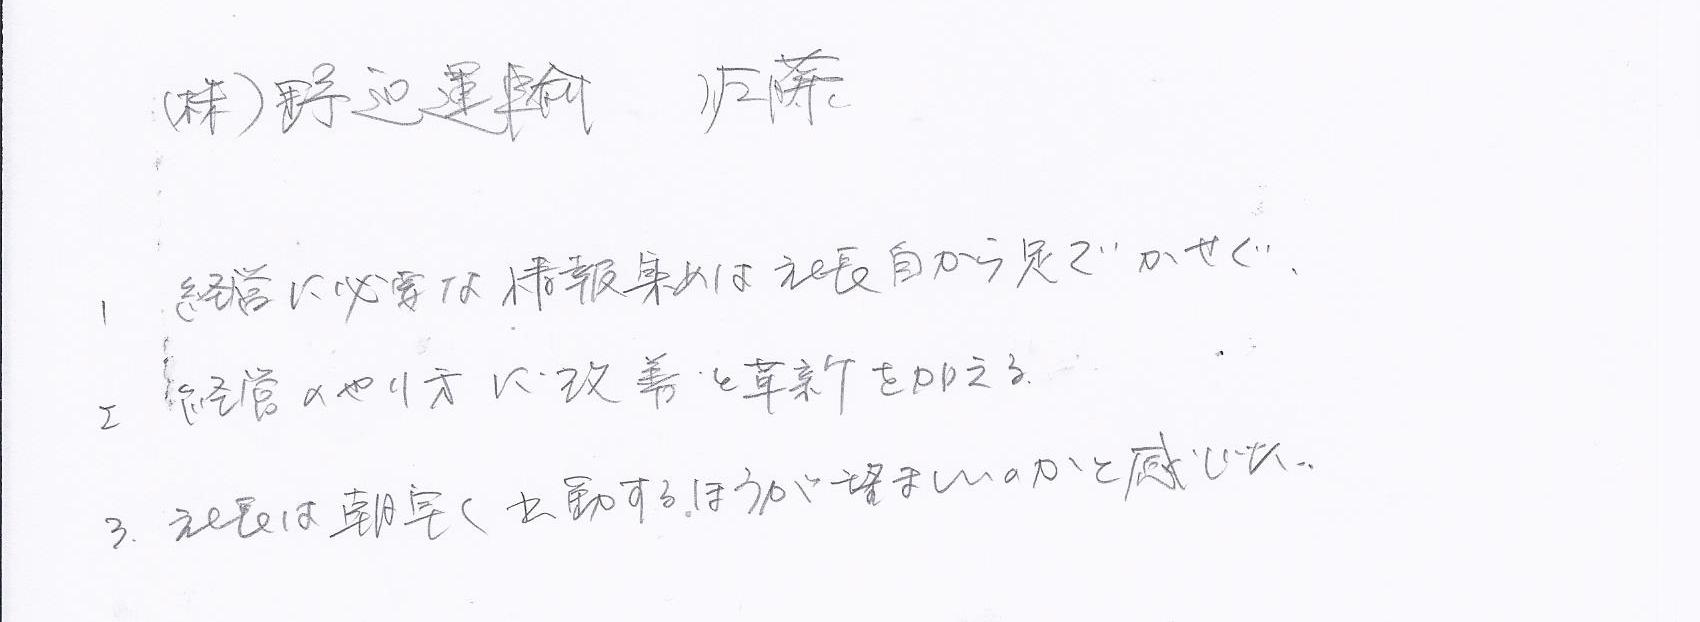 (株)野辺運輸 佐藤
1 経営に必要な情報集めは社長自から足でかせぐ、
2 経営のやり方に改善と革新を加える.
3. 社長は朝早く出勤するほうが望ましいのかと感じた.